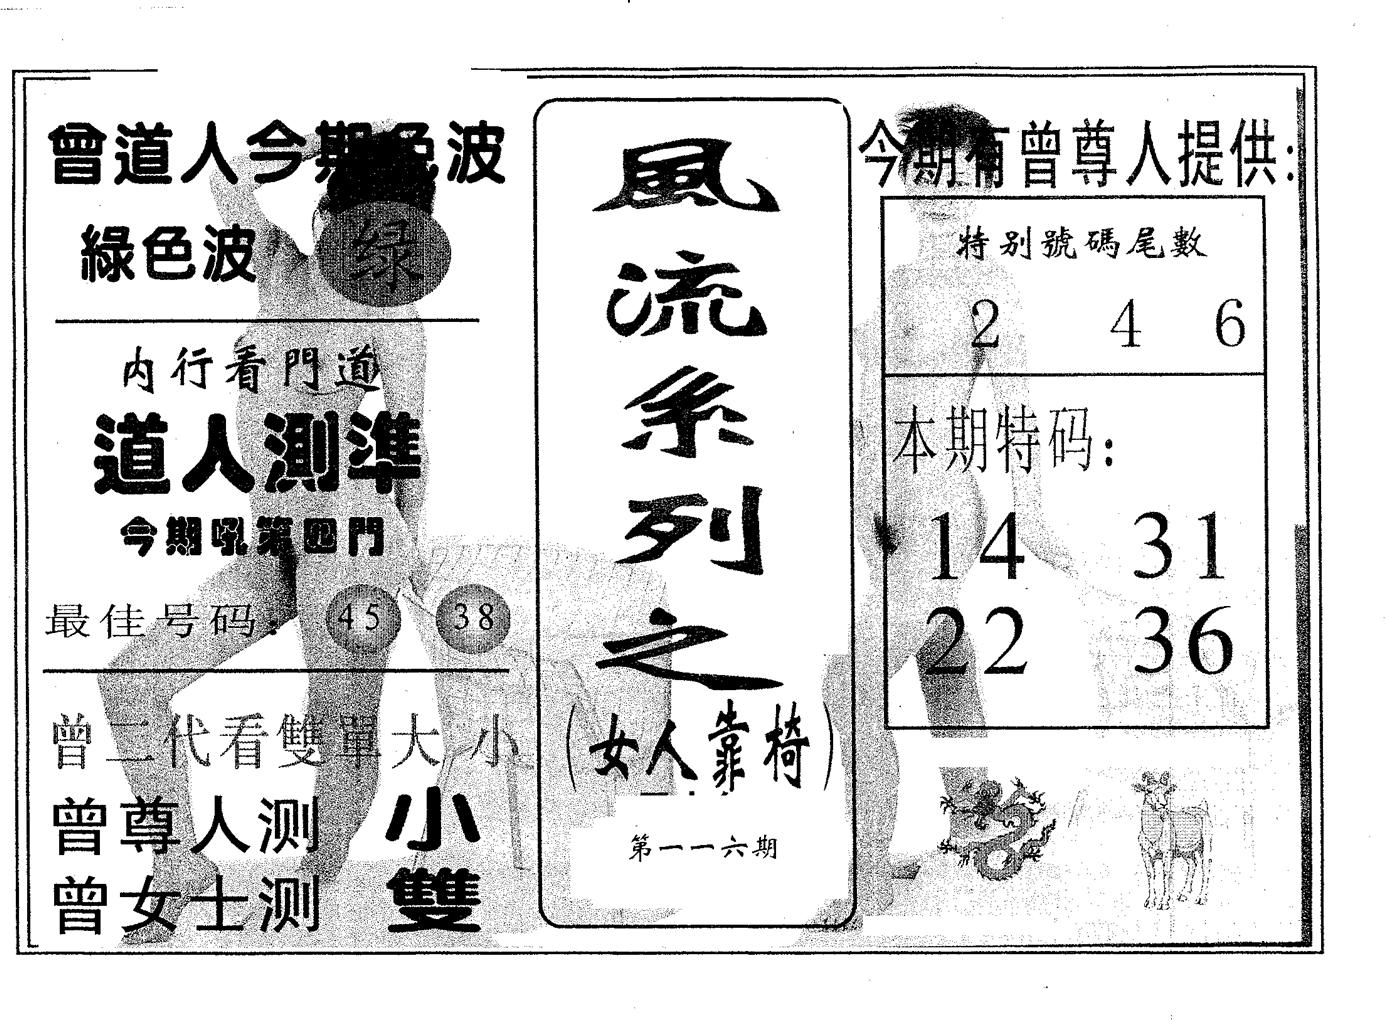 曾道人今期色波
綠色波
绿
内行看門道
道人測準
今期吼第四門
最佳号码：
45 38
曾二代看雙單大小
曾尊人测 小
曾女士测 雙
風流系列之
（女人靠椅）
第一一六期
今期有曾尊人提供：
特别號碼尾數
2 4 6
本期特码：
14 31
22 36